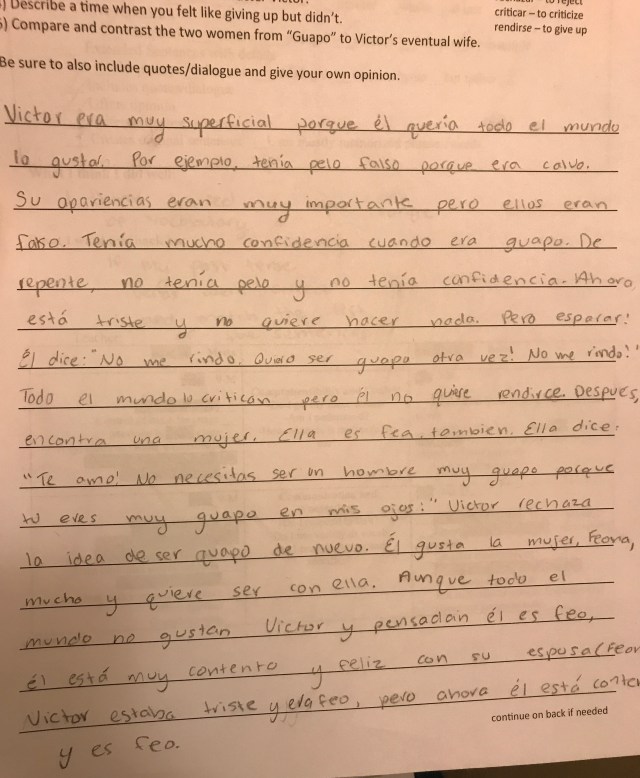 5) Describe a time when you felt like giving up but didn't.
criticar – to criticize
6) Compare and contrast the two women from "Guapo" to Victor's eventual wife.
rendirse – to give up
Be sure to also include quotes/dialogue and give your own opinion.
Victor era muy superficial porque él quería todo el mundo
lo gustar. Por ejemplo, tenía pelo falso porque era calvo.
Su apariencias eran muy importante pero ellos eran
falso. Tenía mucho confidencia cuando era guapo. De
repente, no tenía pelo y no tenía confidencia. Ahora
está triste y no quiere hacer nada. Pero esparar!
Él dice: "No me rindo. Quiero ser guapo otra vez! No me rindo!"
Todo el mundo lo critican pero él no quise rendirce. Despues,
encontra una mujer. Ella es fea, tambien. Ella dice:
"Te amo! No necesitas ser un hombre muy guapo porque
tú eres muy guapo en mis ojos!" Victor rechaza
la idea de ser guapo de nuevo. Él gusta la mujer, Feona,
mucho y quiere ser con ella. Aunque todo el
mundo no gustan Victor y pensadan él es feo,
él está muy contento y feliz con su esposa (Feon
Victor estaba triste y era feo, pero ahora él está conten
continue on back if needed
y es feo.